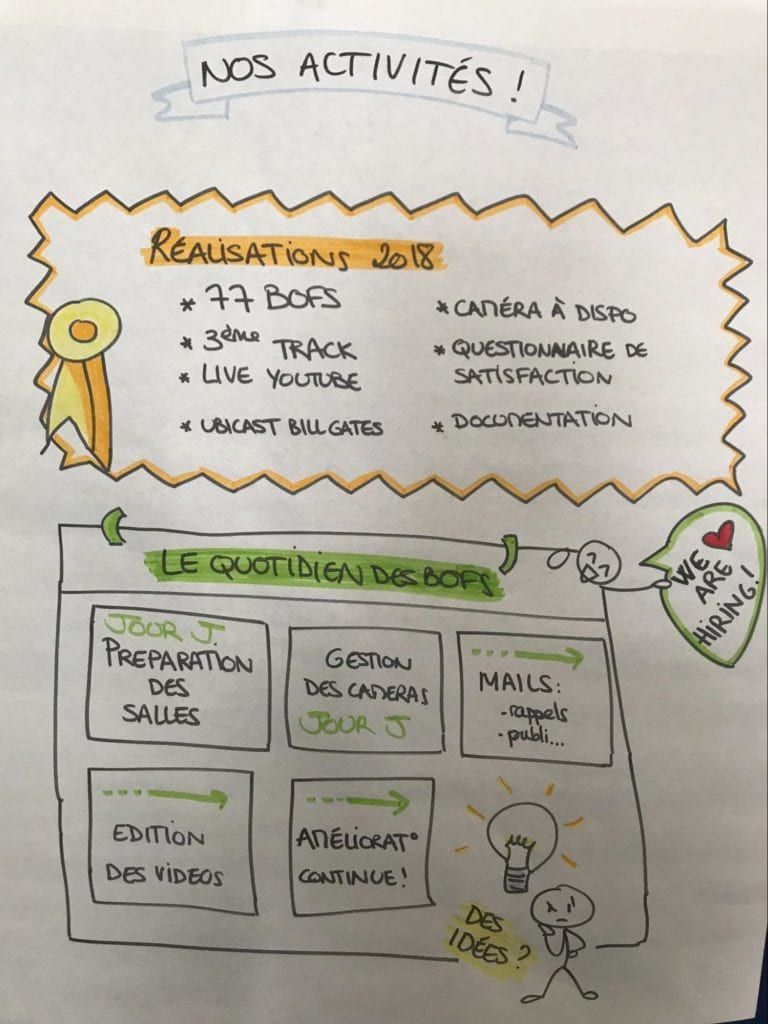 NOS ACTIVITÉS !
RÉALISATIONS 2018
* 77 BOFS
* 3ème TRACK
* LIVE YOUTUBE
* UBICAST BILL GATES
* CAMÉRA À DISPO
* QUESTIONNAIRE DE
SATISFACTION
* DOCUMENTATION
LE QUOTIDIEN DES BOFS
WE
ARE
HIRING!
JOUR J
PREPARATION
DES
SALLES
GESTION
DES CAMERAS
JOUR J
MAILS:
- rappels
- publi...
EDITION
DES VIDEOS
AMÉLIORAT°
CONTINUE!
DES
IDÉES ?